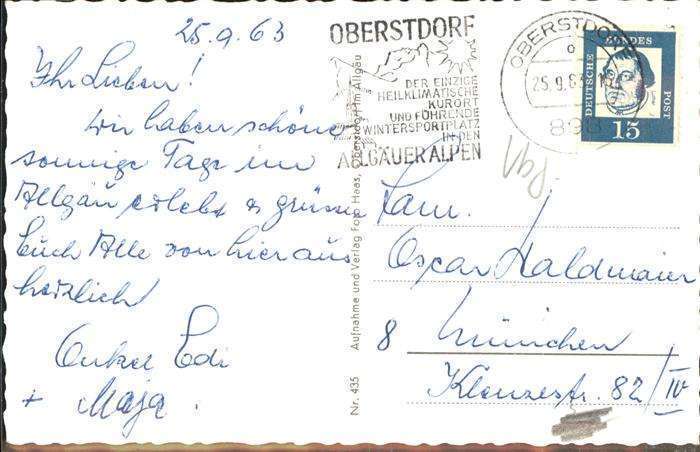 25.9.63
Ihr Lieben!
Wir haben schöne
sonnige Tage im
Allgäu erlebt & grüssen
Euch Alle von hier aus
herzlich
Onkel Edi
+ Maja.
OBERSTDORF
DER EINZIGE
HEILKLIMATISCHE
KURORT
UND FÜHRENDE
WINTERSPORTPLATZ
IN DEN
ALLGÄUER ALPEN
OBERSTDORF
25.9.63
898
DEUTSCHE BUNDESPOST
15
Nr. 435 Aufnahme und Verlag Foto Haas, Oberstdorf im Allgäu
Fam.
Oscar Waldmaier
8 München
Klenzestr. 82/IV